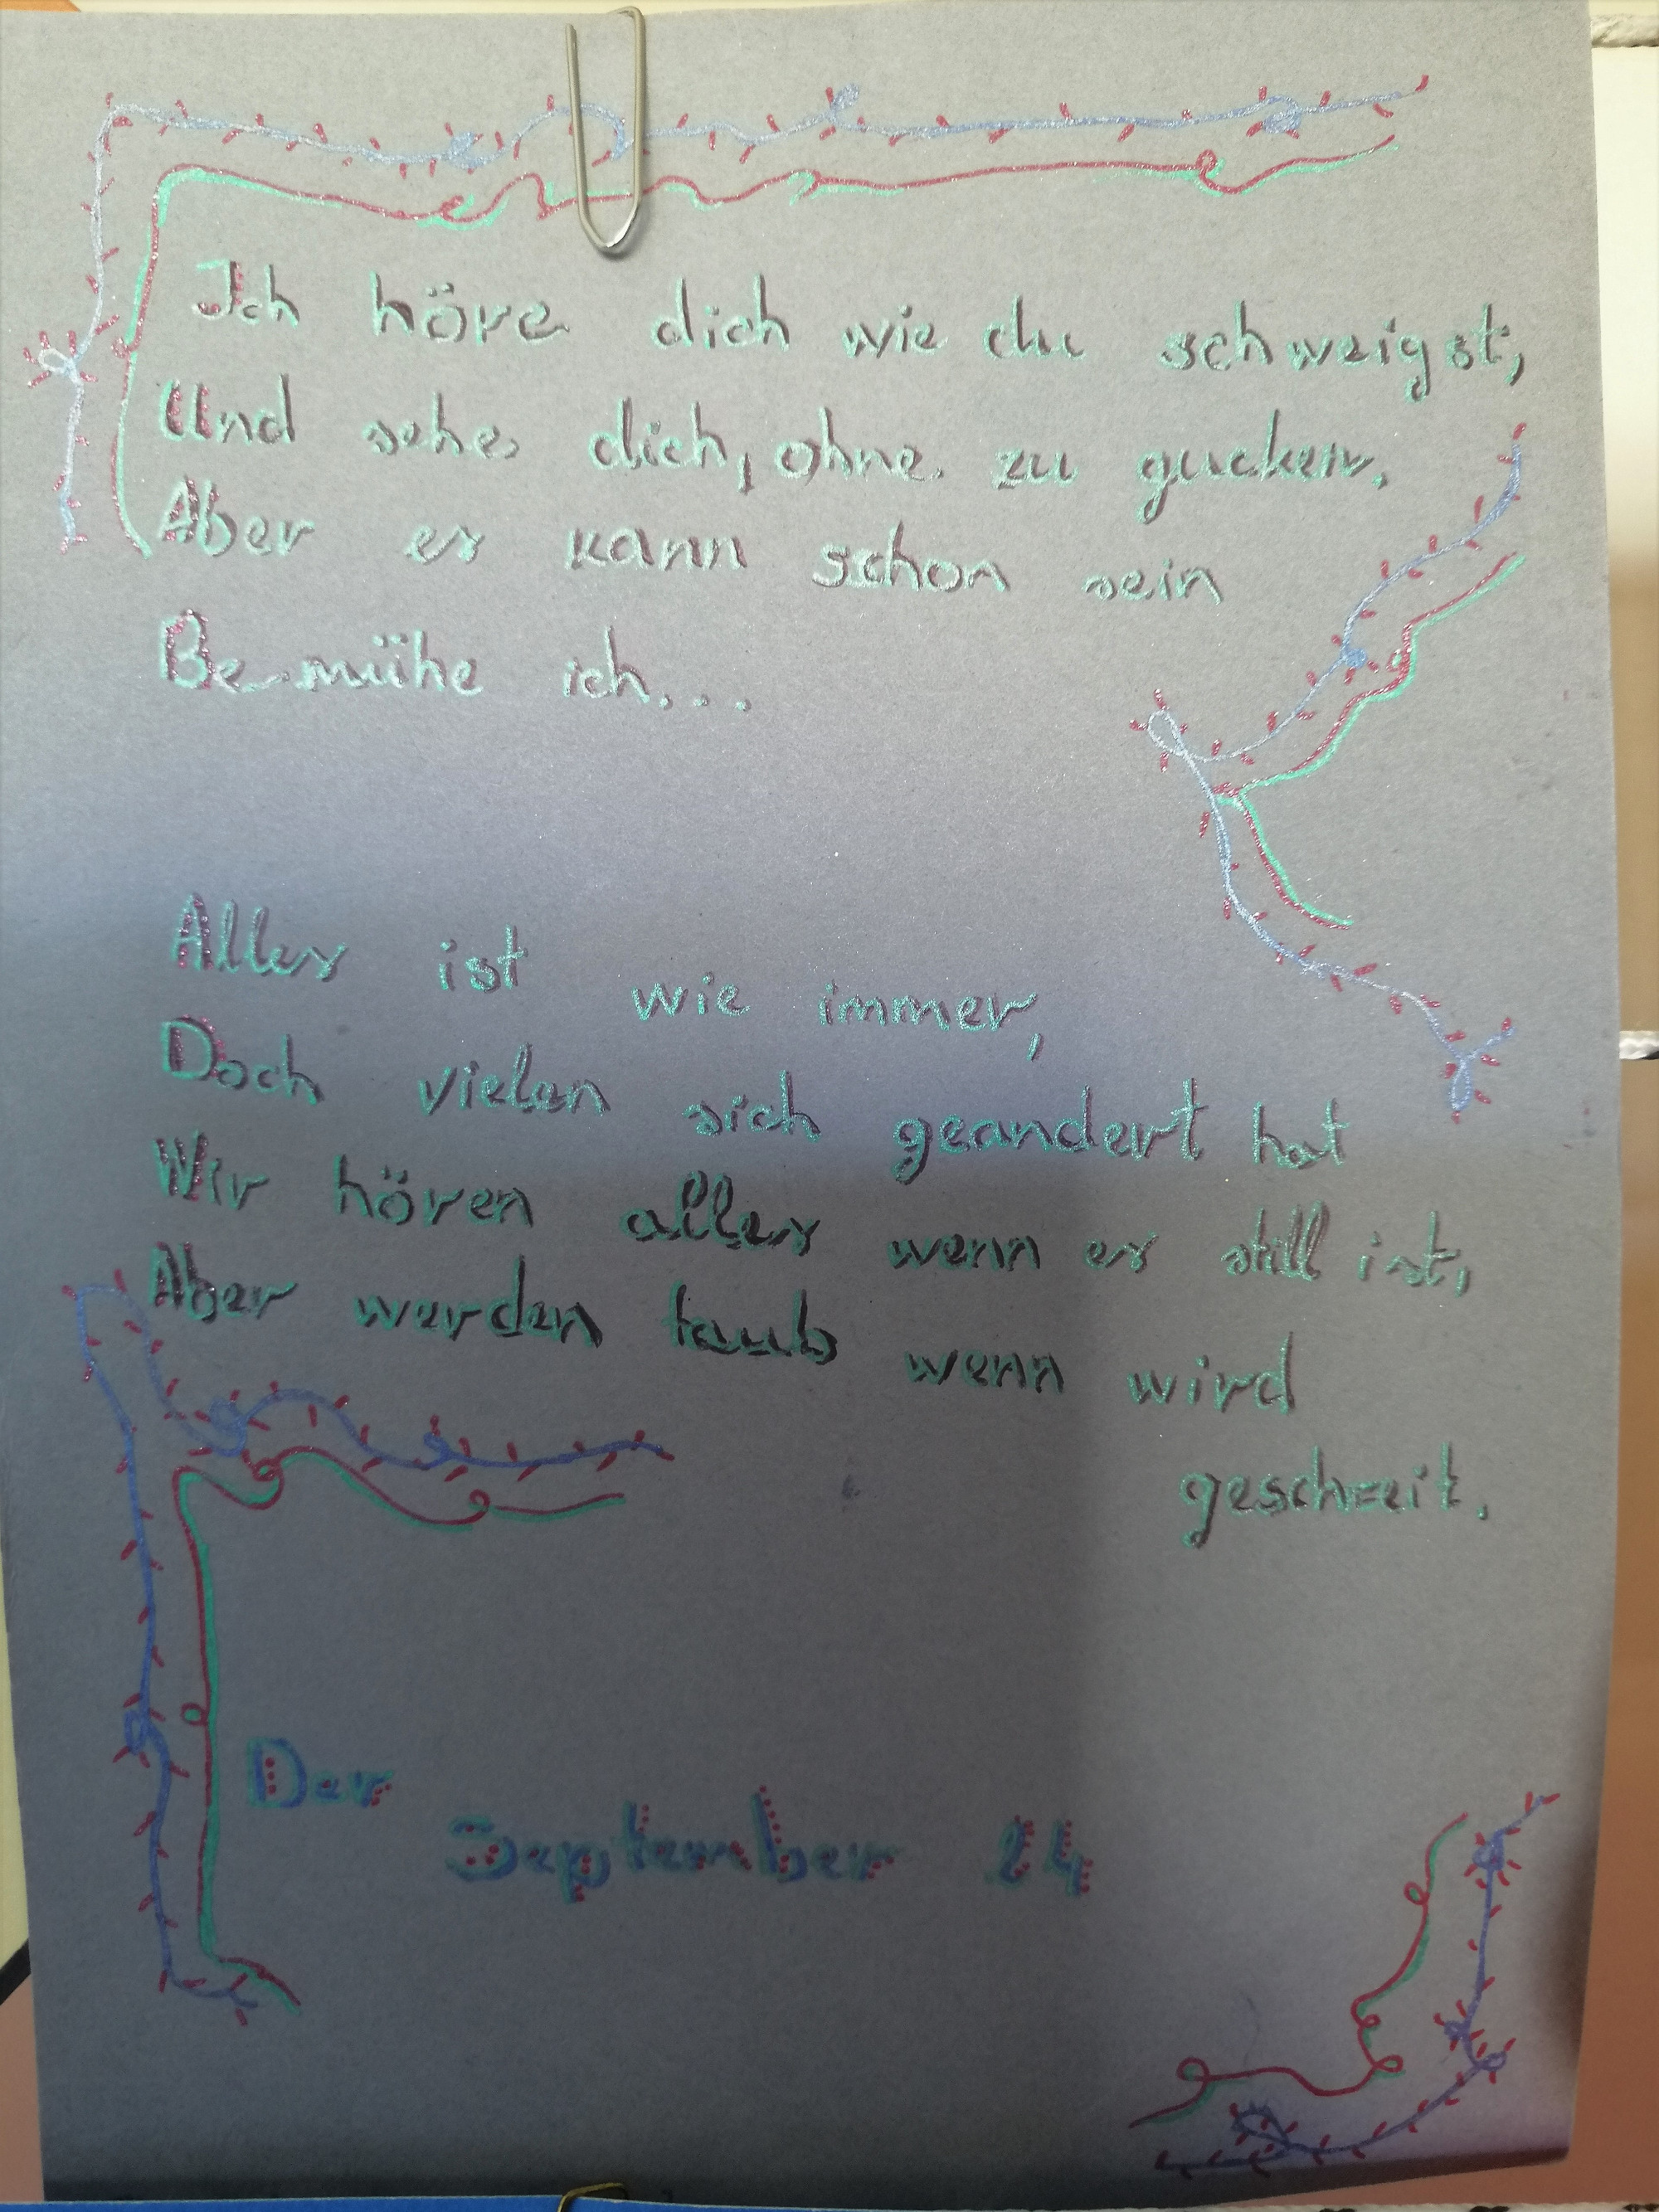 Ich höre dich wie du schweigst,
Und sehe dich, ohne zu gucken.
Aber es kann schon sein
Bemühe ich...
Alles ist wie immer,
Doch vieles sich geandert hat
Wir hören alles wenn es still ist,
Aber werden taub wenn wird
geschreit.
Der
September 24